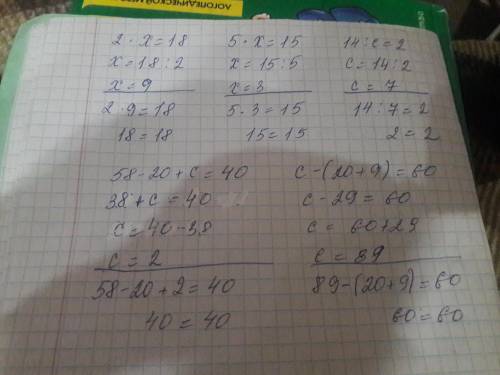 ЛОГОПЕДИЧЕСКОЙ
2 · x = 18
x = 18 : 2
x = 9
2 · 9 = 18
18 = 18
5 · x = 15
x = 15 : 5
x = 3
5 · 3 = 15
15 = 15
14 : c = 2
c = 14 : 2
c = 7
14 : 7 = 2
2 = 2
58 - 20 + c = 40
38 + c = 40
c = 40 - 38
c = 2
58 - 20 + 2 = 40
40 = 40
c - (20 + 9) = 60
c - 29 = 60
c = 60 + 29
c = 89
89 - (20 + 9) = 60
60 = 60